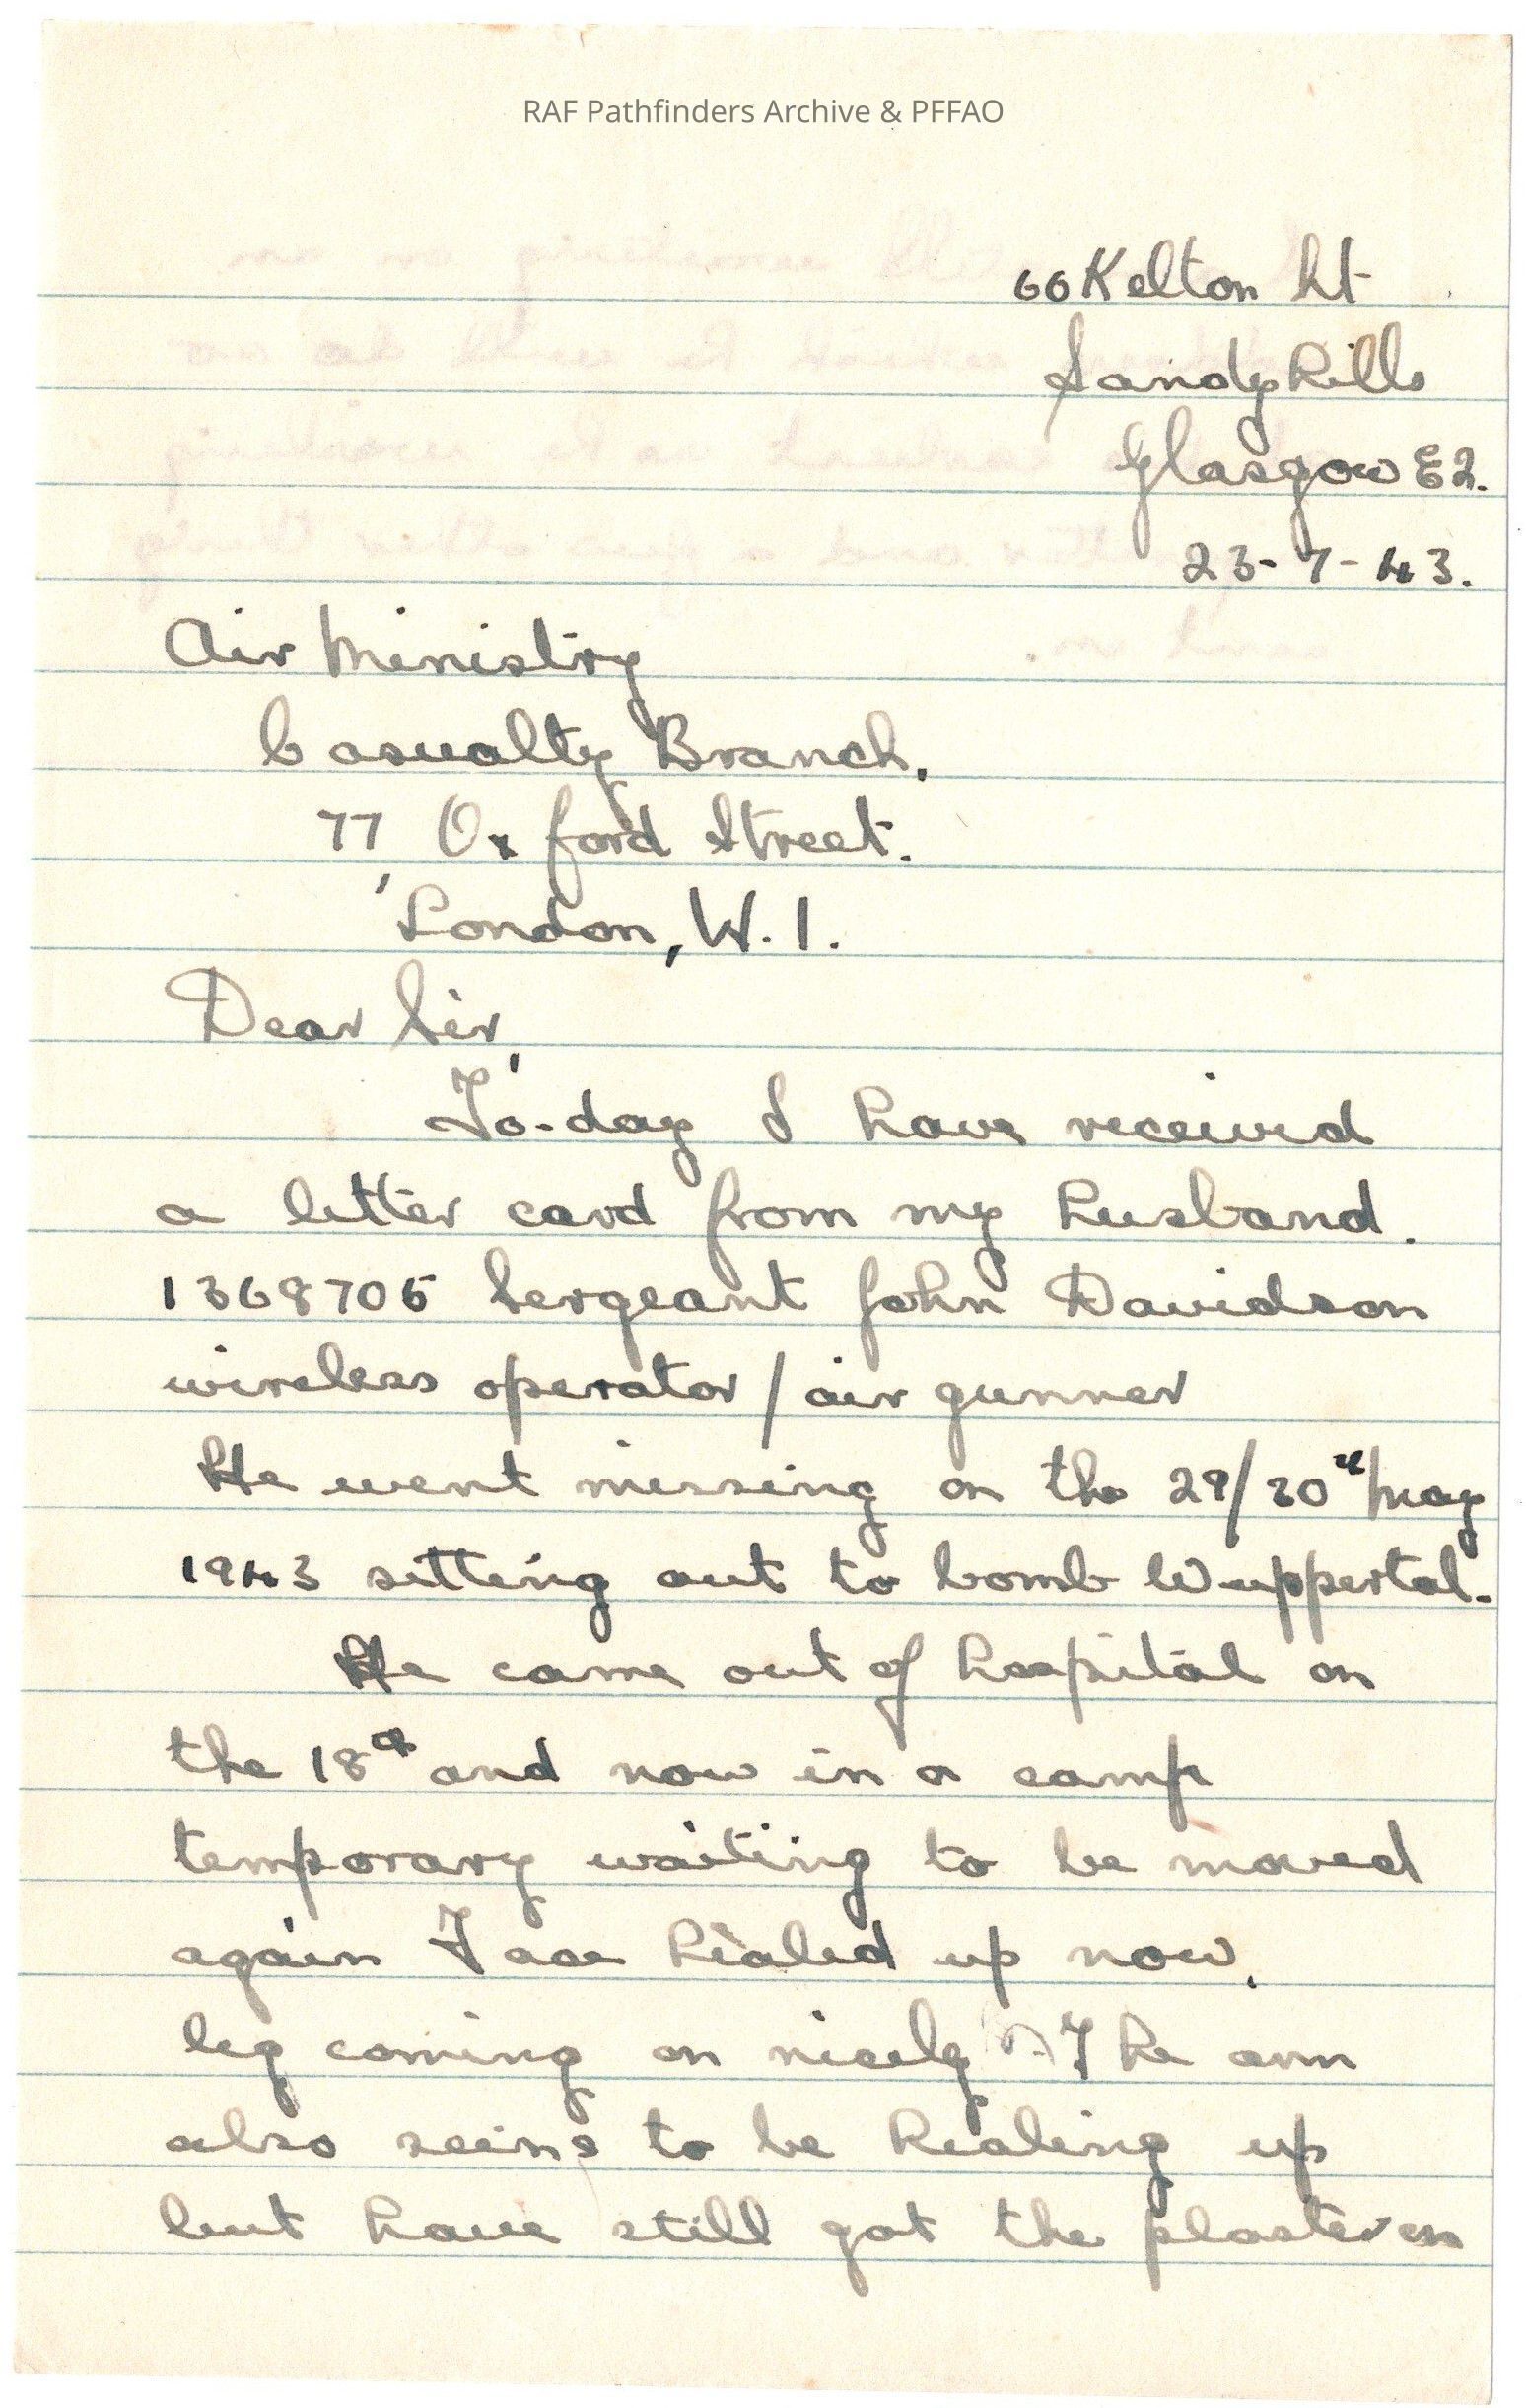 RAF Pathfinders Archive & PFFAO
66 Kelton St
Sandyhills
Glasgow E2.
23-7-43.
Air Ministry
Casualty Branch.
77, Oxford Street.
London, W.1.
Dear Sir,
To-day I have received
a letter card from my husband.
1368705 Sergeant John Davidson
wireless operator / air gunner
He went missing on the 29/30th/May
1943 setting out to bomb Wuppertal.
He came out of hospital on
the 18th and now in a camp
temporary waiting to be moved
again Face healed up now.
leg coming on nicely The arm
also seems to be healing up
but have still got the plaster on